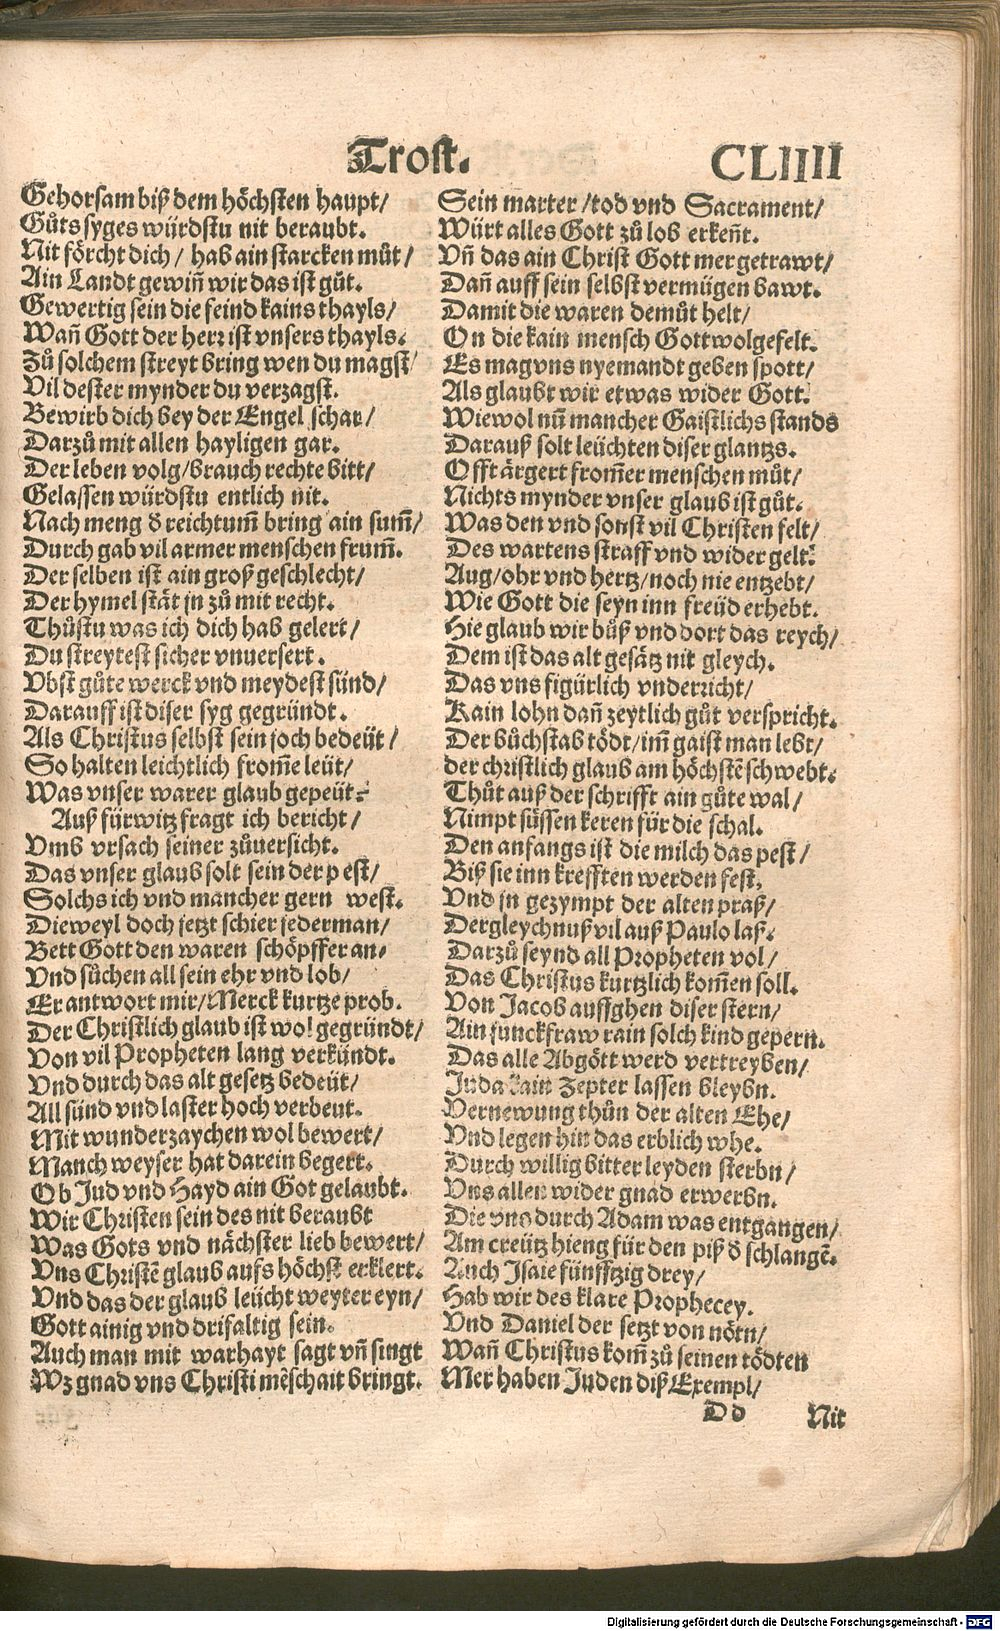 Trost. CLIIII
Gehorsam biß dem höchsten haupt/
Gůts syges würdstu nit beraubt.
Nit förcht dich / hab ain starcken můt /
Ain Landt gewiñ wir das ist gůt.
Gewertig sein die feind kains thayls/
Wañ Gott der herr ist vnsers thayls.
Zů solchem streyt bring wen du magst/
Vil dester mynder du verzagst.
Bewirb dich bey der Engel schar/
Darzů mit allen hayligen gar.
Der leben volg/brauch rechte bitt/
Gelassen würdstu entlich nit.
Nach meng d̕ reichtum̃ bring ain sum̃/
Durch gab vil armer menschen frum̃.
Der selben ist ain groß geschlecht/
Der hymel stät jn zů mit recht.
Thůstu was ich dich hab gelert/
Du streytest sicher vnuersert.
Vbst gůte werck vnd meydest sünd/
Darauff ist diser syg gegründt.
Als Christus selbst sein joch bedeüt /
So halten leichtlich from̃e leüt/
Was vnser warer glaub gepeüt.
Auß fürwitz fragt ich bericht/
Vmb vrsach seiner zůuersicht.
Das vnser glaub solt sein der pest/
Solchs ich vnd mancher gern west.
Dieweyl doch jetzt schier jederman/
Bett Gott den waren schöpffer an.
Vnd sůchen all sein ehr vnd lob/
Er antwort mir/Merck kurtze prob.
Der Christlich glaub ist wol gegründt/
Von vil Propheten lang verkündt.
Vnd durch das alt gesetz bedeüt/
All sünd vnd laster hoch verbeut.
Mit wunderzaychen wol bewert/
Manch weyser hat darein begert.
Ob Jud vnd Hayd ain Got gelaubt.
Wir Christen sein des nit beraubt
Was Gots vnd nächster lieb bewert/
Vns Christẽ glaub aufs höchst erklert.
Vnd das der glaub leücht weyter eyn/
Gott ainig vnd drifaltig sein.
Auch man mit warhayt sagt vñ singt
Wz gnad vns Christi mẽschait bringt.
Sein marter /tod vnd Sacrament/
Würt alles Gott zů lob erkeñt.
Vñ das ain Christ Gott mer getrawt/
Dañ auff sein selbst vermügen bawt.
Damit die waren demůt helt/
On die kain mensch Gott wolgefelt.
Es mag vns nyemandt geben spott/
Als glaubt wir etwas wider Gott.
Wiewol nũ mancher Gaistlichs stands
Darauß solt leüchten diser glantzs.
Offt ärgert from̃er menschen můt/
Nichts mynder vnser glaub ist gůt.
Was den vnd sonst vil Christen felt/
Des wartens straff vnd wider gelt.
Aug/ohr vnd hertz/noch nie entzebt/
Wie Gott die seyn inn freüd erhebt.
Hie glaub wir bůß vnd dort das reych/
Dem ist das alt gesätz nit gleych.
Das vns figürlich vnderricht/
Kain lohn dañ zeytlich gůt verspricht.
Der bůchstab tödt/im̃ gaist man lebt/
der christlich glaub am höchstẽ schwebt.
Thůt auß der schrifft ain gůte wal/
Nimpt süssen keren für die schal.
Den anfangs ist die milch das pest/
Biß sie inn krefften werden fest.
Vnd jn gezympt der alten praß/
Dergleychnuß vil auß Paulo laß.
Darzů seynd all Propheten vol/
Das Christus kurtzlich kom̃en soll.
Von Jacob auffghen diser stern/
Ain junckfraw rain solch kind gepern.
Das alle Abgött werd vertreyben/
Juda kain Zepter lassen bleybn.
Vernewung thůn der alten Ehe/
Vnd legen hin das erblich whe.
Durch willig bitter leyden sterbn/
Vns allen wider gnad erwerbn.
Die vns durch Adam was entgangen/
Am creütz hieng für den piß d̕ schlangẽ.
Auch Isaie fünfftzig drey/
Hab wir des klare Prophecey.
Vnd Daniel der setzt von nötn/
Wañ Christus kom̃ zů seinen tödten
Mer haben Juden diß Exempl/
Dd Nit
Digitalisierung gefördert durch die Deutsche Forschungsgemeinschaft - DFG